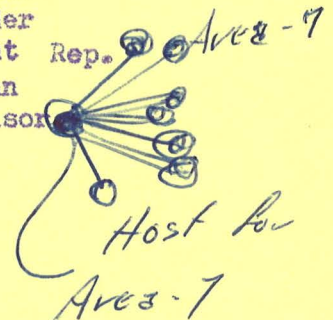 er
t Rep.
n
sor
Area-7
Host for
Area-7